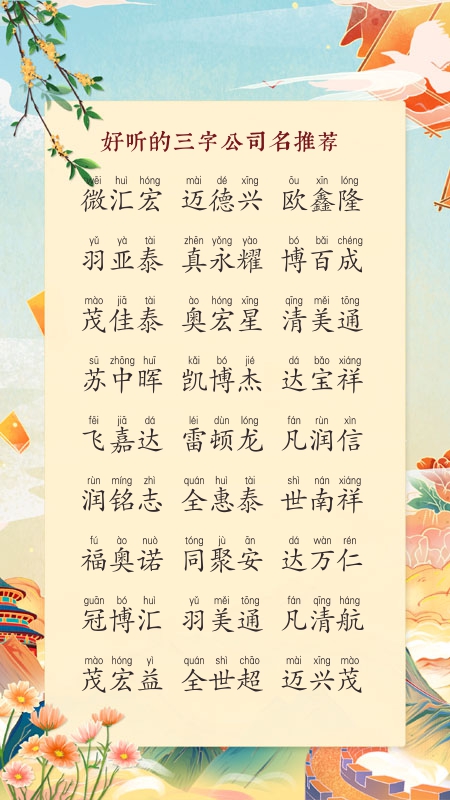 好听的三字公司名推荐
wēi huì hóng mài dé xīng ōu xīn lóng
微汇宏 迈德兴 欧鑫隆
yǔ yà tài zhēn yǒng yào bó bǎi chéng
羽亚泰 真永耀 博百成
mào jiā tài ào hóng xīng qīng měi tōng
茂佳泰 奥宏星 清美通
sū zhōng huī kǎi bó jié dá bǎo xiáng
苏中晖 凯博杰 达宝祥
fēi jiā dá léi dùn lóng fán rùn xìn
飞嘉达 雷顿龙 凡润信
rùn míng zhì quán huì tài shì nán xiáng
润铭志 全惠泰 世南祥
fú ào nuò tóng jù ān dá wàn rén
福奥诺 同聚安 达万仁
guān bó huì yǔ měi tōng fán qīng háng
冠博汇 羽美通 凡清航
mào hóng yì quán shì chāo mài xīng mào
茂宏益 全世超 迈兴茂